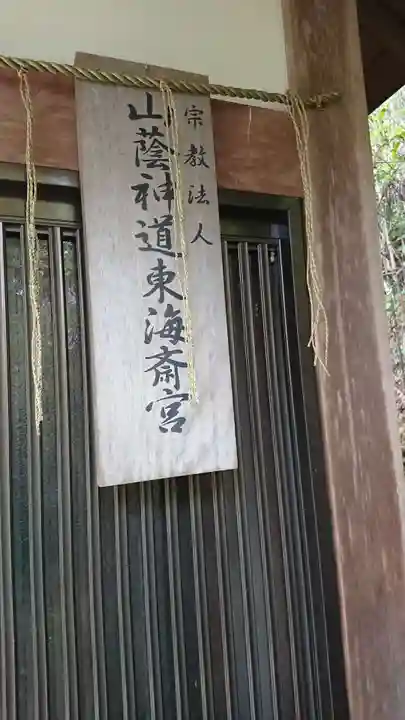 宗教法人
山蔭神道東海斎宮